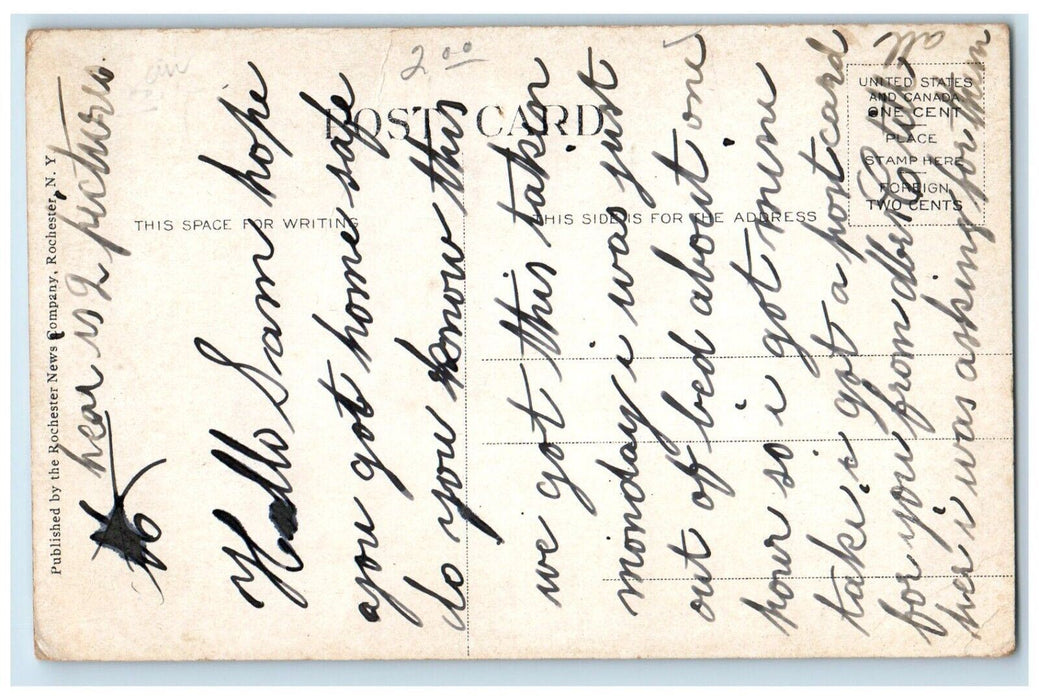 Published by the Rochester News Company, Rochester, N. Y
hear is 2 pictures.
2 00
POST CARD
THIS SPACE FOR WRITING
THIS SIDE IS FOR THE ADDRESS
UNITED STATES
AND CANADA
ONE CENT
PLACE
STAMP HERE
FOREIGN
TWO CENTS
Hello Sam hope
you got home safe
do you know this
we got this taken
monday i was just
out of bed about one
hour so i got mine
take i got a post card
for you from
her i was asking for them
all